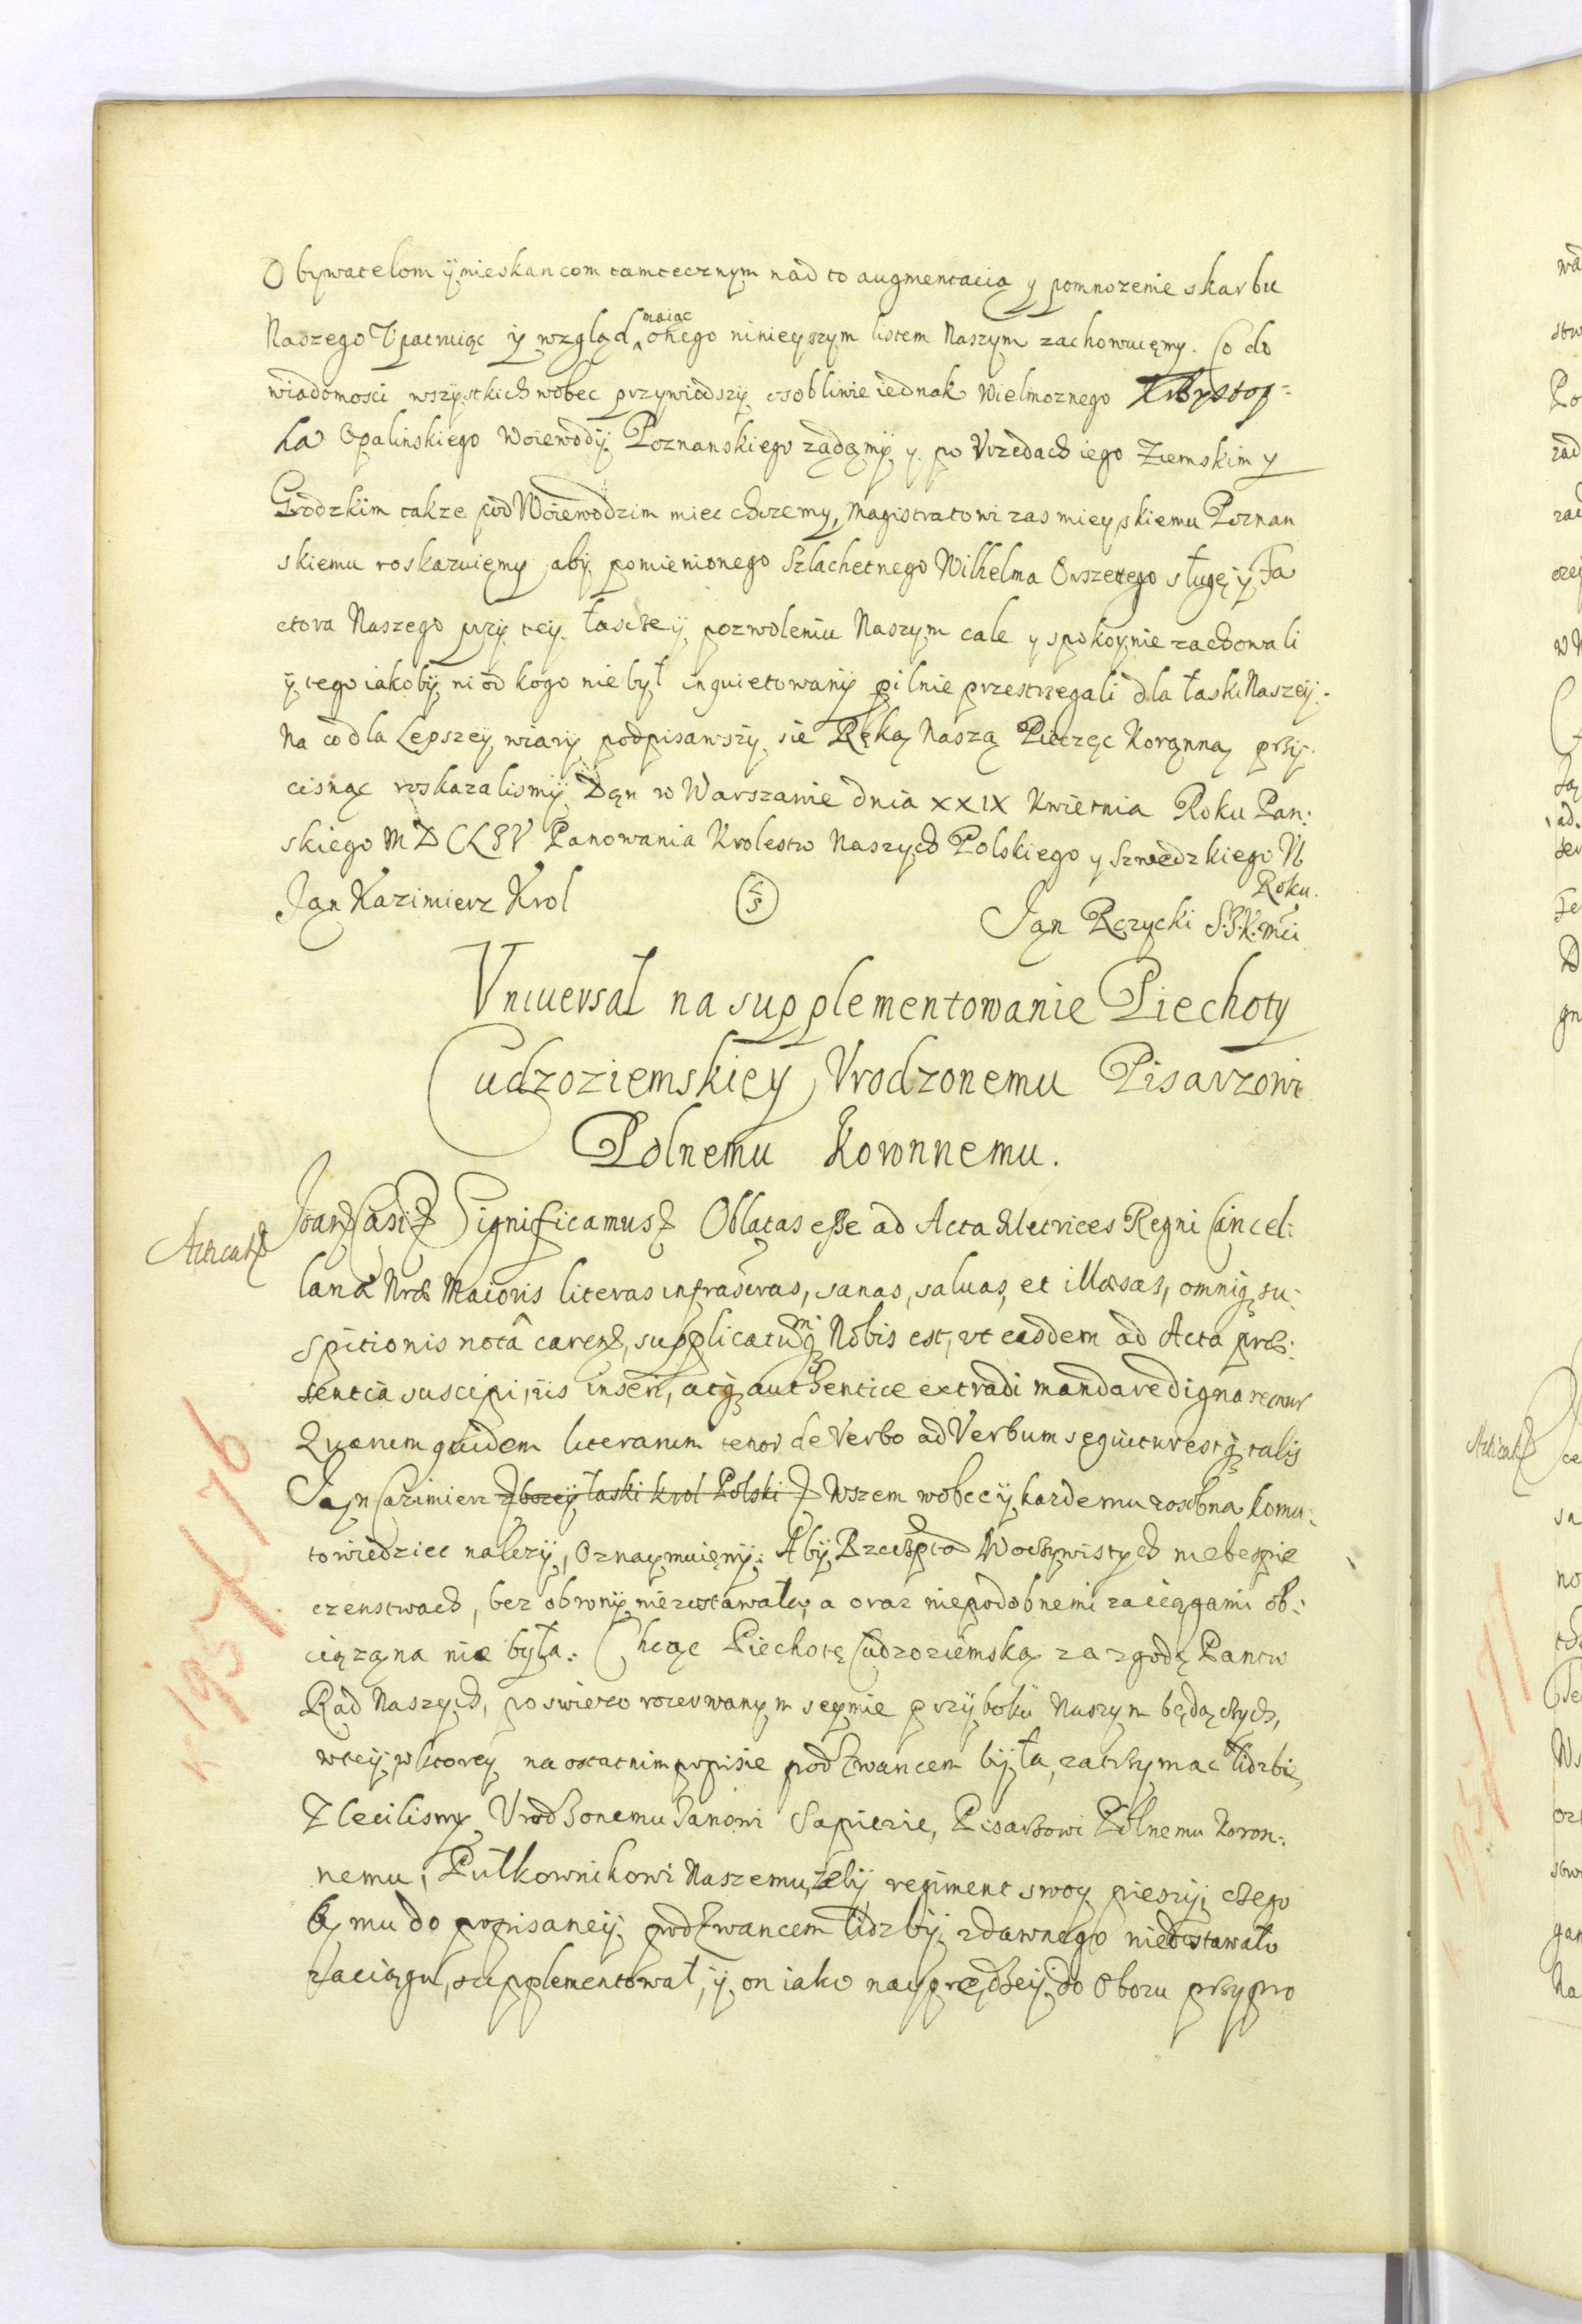 Obywatelom ÿ mieskancom tamtecznym nad to augmentacią y pomnozenie skarbu
Naszego Vpatruiąc ÿ wzgląd maiąc onego ninieyszym listem Naszym zachowuięmy. Co do
wiadomosci wszÿstkich wobec przywiodszÿ osobliwie iednak Wielmoznego Krzysztop=
ha Opalinskiego Woiewodÿ Poznanskiego ządąmÿ y po Vrzędach iego Ziemskim y
Grodzkim takze pod Woiewodzim miec chcemy, Magistratowi zas mieyskiemu Poznan
skiemu roskazuięmy abÿ pomienionego Szlachetnego Wilhelma Orszetego sługę ÿ Fa
ctora Naszego przÿ teÿ łasce ÿ pozwoleniu Naszym cale y spokoynie zachowali
ÿ tego iakobÿ ni od kogo nie był inquietowanÿ pilnie przestrzegali dla łaski Naszeÿ.
Na co dla Lepszeÿ wiarÿ podpisawszÿ sie Ręką Naszą Pieczęc Korąnną przÿ:
cisnąc roskazalismÿ Dąn w Warszawie dnia XXIX Kwietnia Roku Pan:
skiego MDCLIV Panowania Krolestw Naszych Polskiego y Szwedzkiego VI
Roku.
Jąn Kazimierz Krol
LS
Jąn Rczycki S.P.K.Mci
Vniuersał na supplementowanie Piechoty
Cudzoziemskiey Vrodzonemu Pisarzowi
Polnemu Koronnemu.
Acticat
Joan Casi Significamus Oblatas esse ad Acta Metrices Regni Cancel:
lariæ Nræ Maioris literas infrascras, sanas, saluas, et illæsas, omniq su:
spitionis notâ caren, supplicatumq Nobis est, vt easdem ad Acta præ:
sentia suscipi, iis inseri, atq authentice extradi mandare dignaremur
Quarum quidem literarum tenor de Verbo ad Verbum sequitur estq talis
Jąn Cazimierz z bozeÿ łaski krol Polski Wszem wobec ÿ kazdemu zosobna komu:
to wiedziec nalezÿ, Oznaymuięmÿ: Abÿ Rzeczpta Woczywistych niebespie
czenstwach, bez obronÿ nie zostawała, a oraz niepodobnemi zaciągami ob:
ciąząna nie była: Chcąc Piechotę Cudzoziemską za zgodą Panow
Rad Naszych, po swiezo rozerwanym seymie przÿ boku Naszym będących,
w teÿ w ktorey na ostatnim popisie pod Zwancem bÿła, zatrzymac lidzbie
Zlecilismy Vrodzonemu Janowi Sapiezie, Pisarzowi Polnemu Koron:
nemu, Pułkownikowi Naszemu, zebÿ regiment swoy pieszÿ, czego
by mu do popisaneÿ pod Zwancem lidzbÿ zdawnego niedostawało
zaciągu, supplementował, ÿ on iako nayprędzeÿ do Obozu przypro
K 1957/76
Acticat